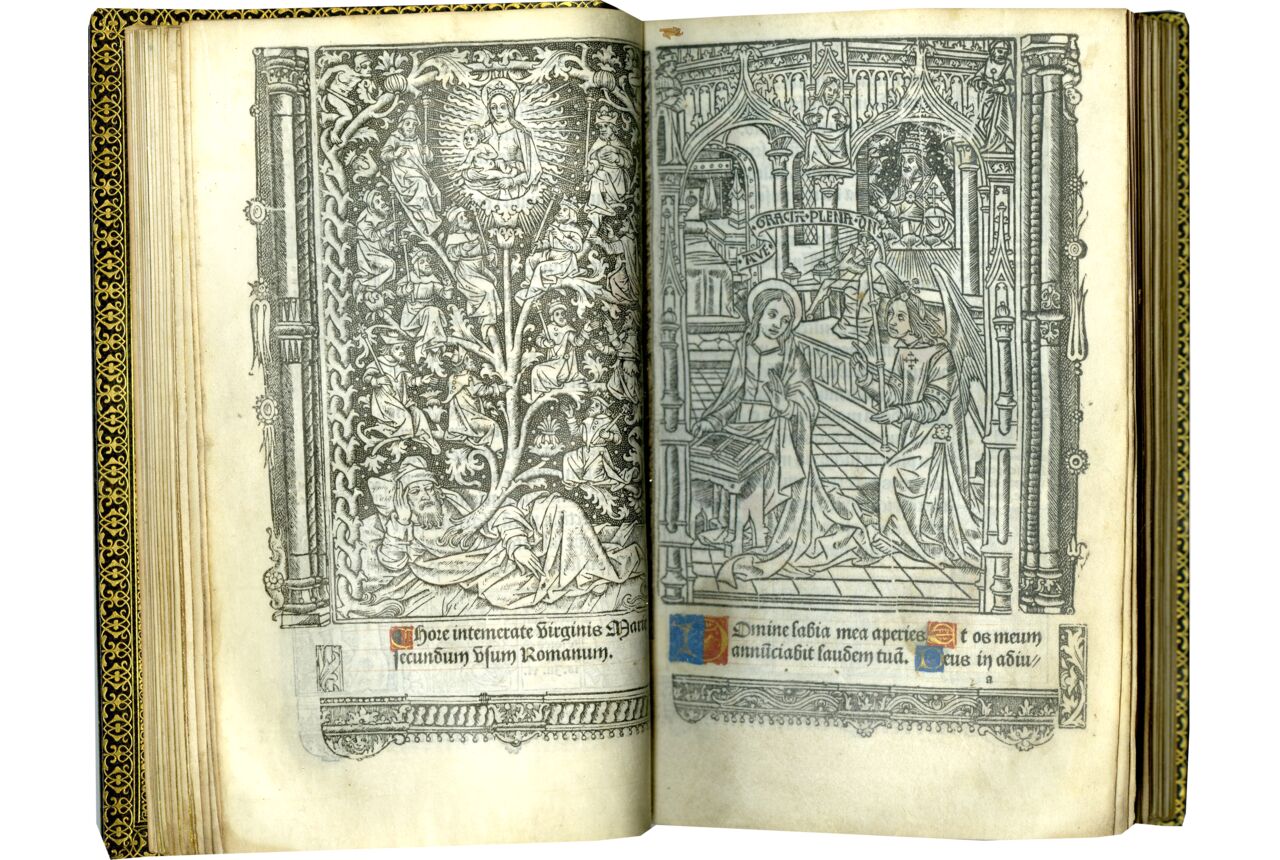 ¶hore intemerate Virginis Marie
secundum vsum Romanum.
AVE · GRACIA · PLENA · DNS
Domine labia mea aperies Et os meum
annūciabit laudem tuā. Deus in adiu//
a